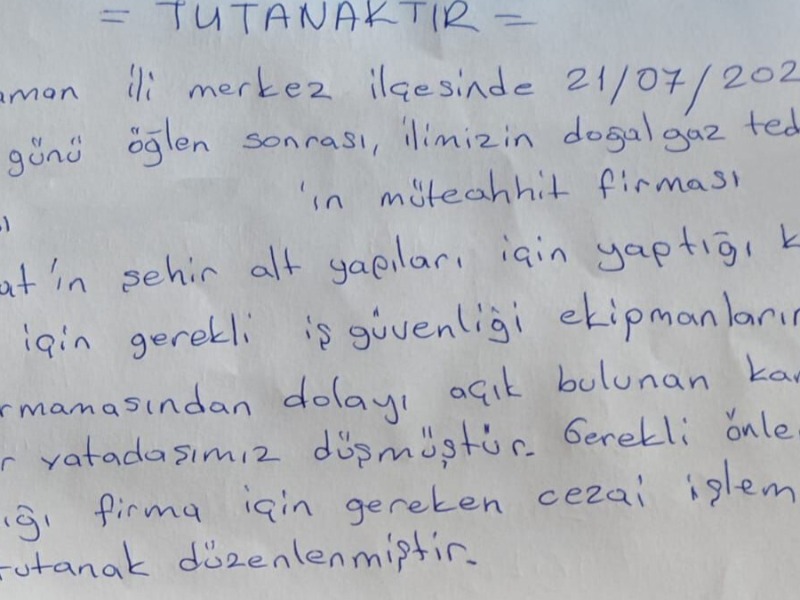 = TUTANAKTIR =
aman ili merkez ilçesinde 21/07/202
günü öğlen sonrası, ilimizin doğal gaz ted
'ın müteahhit firması
ı
at'ın şehir alt yapıları için yaptığı k
için gerekli iş güvenliği ekipmanların
rmamasından dolayı açık bulunan kan
r vatadaşımız düşmüştür. Gerekli önle
ığı firma için gereken cezai işlem
tutanak düzenlenmiştir.